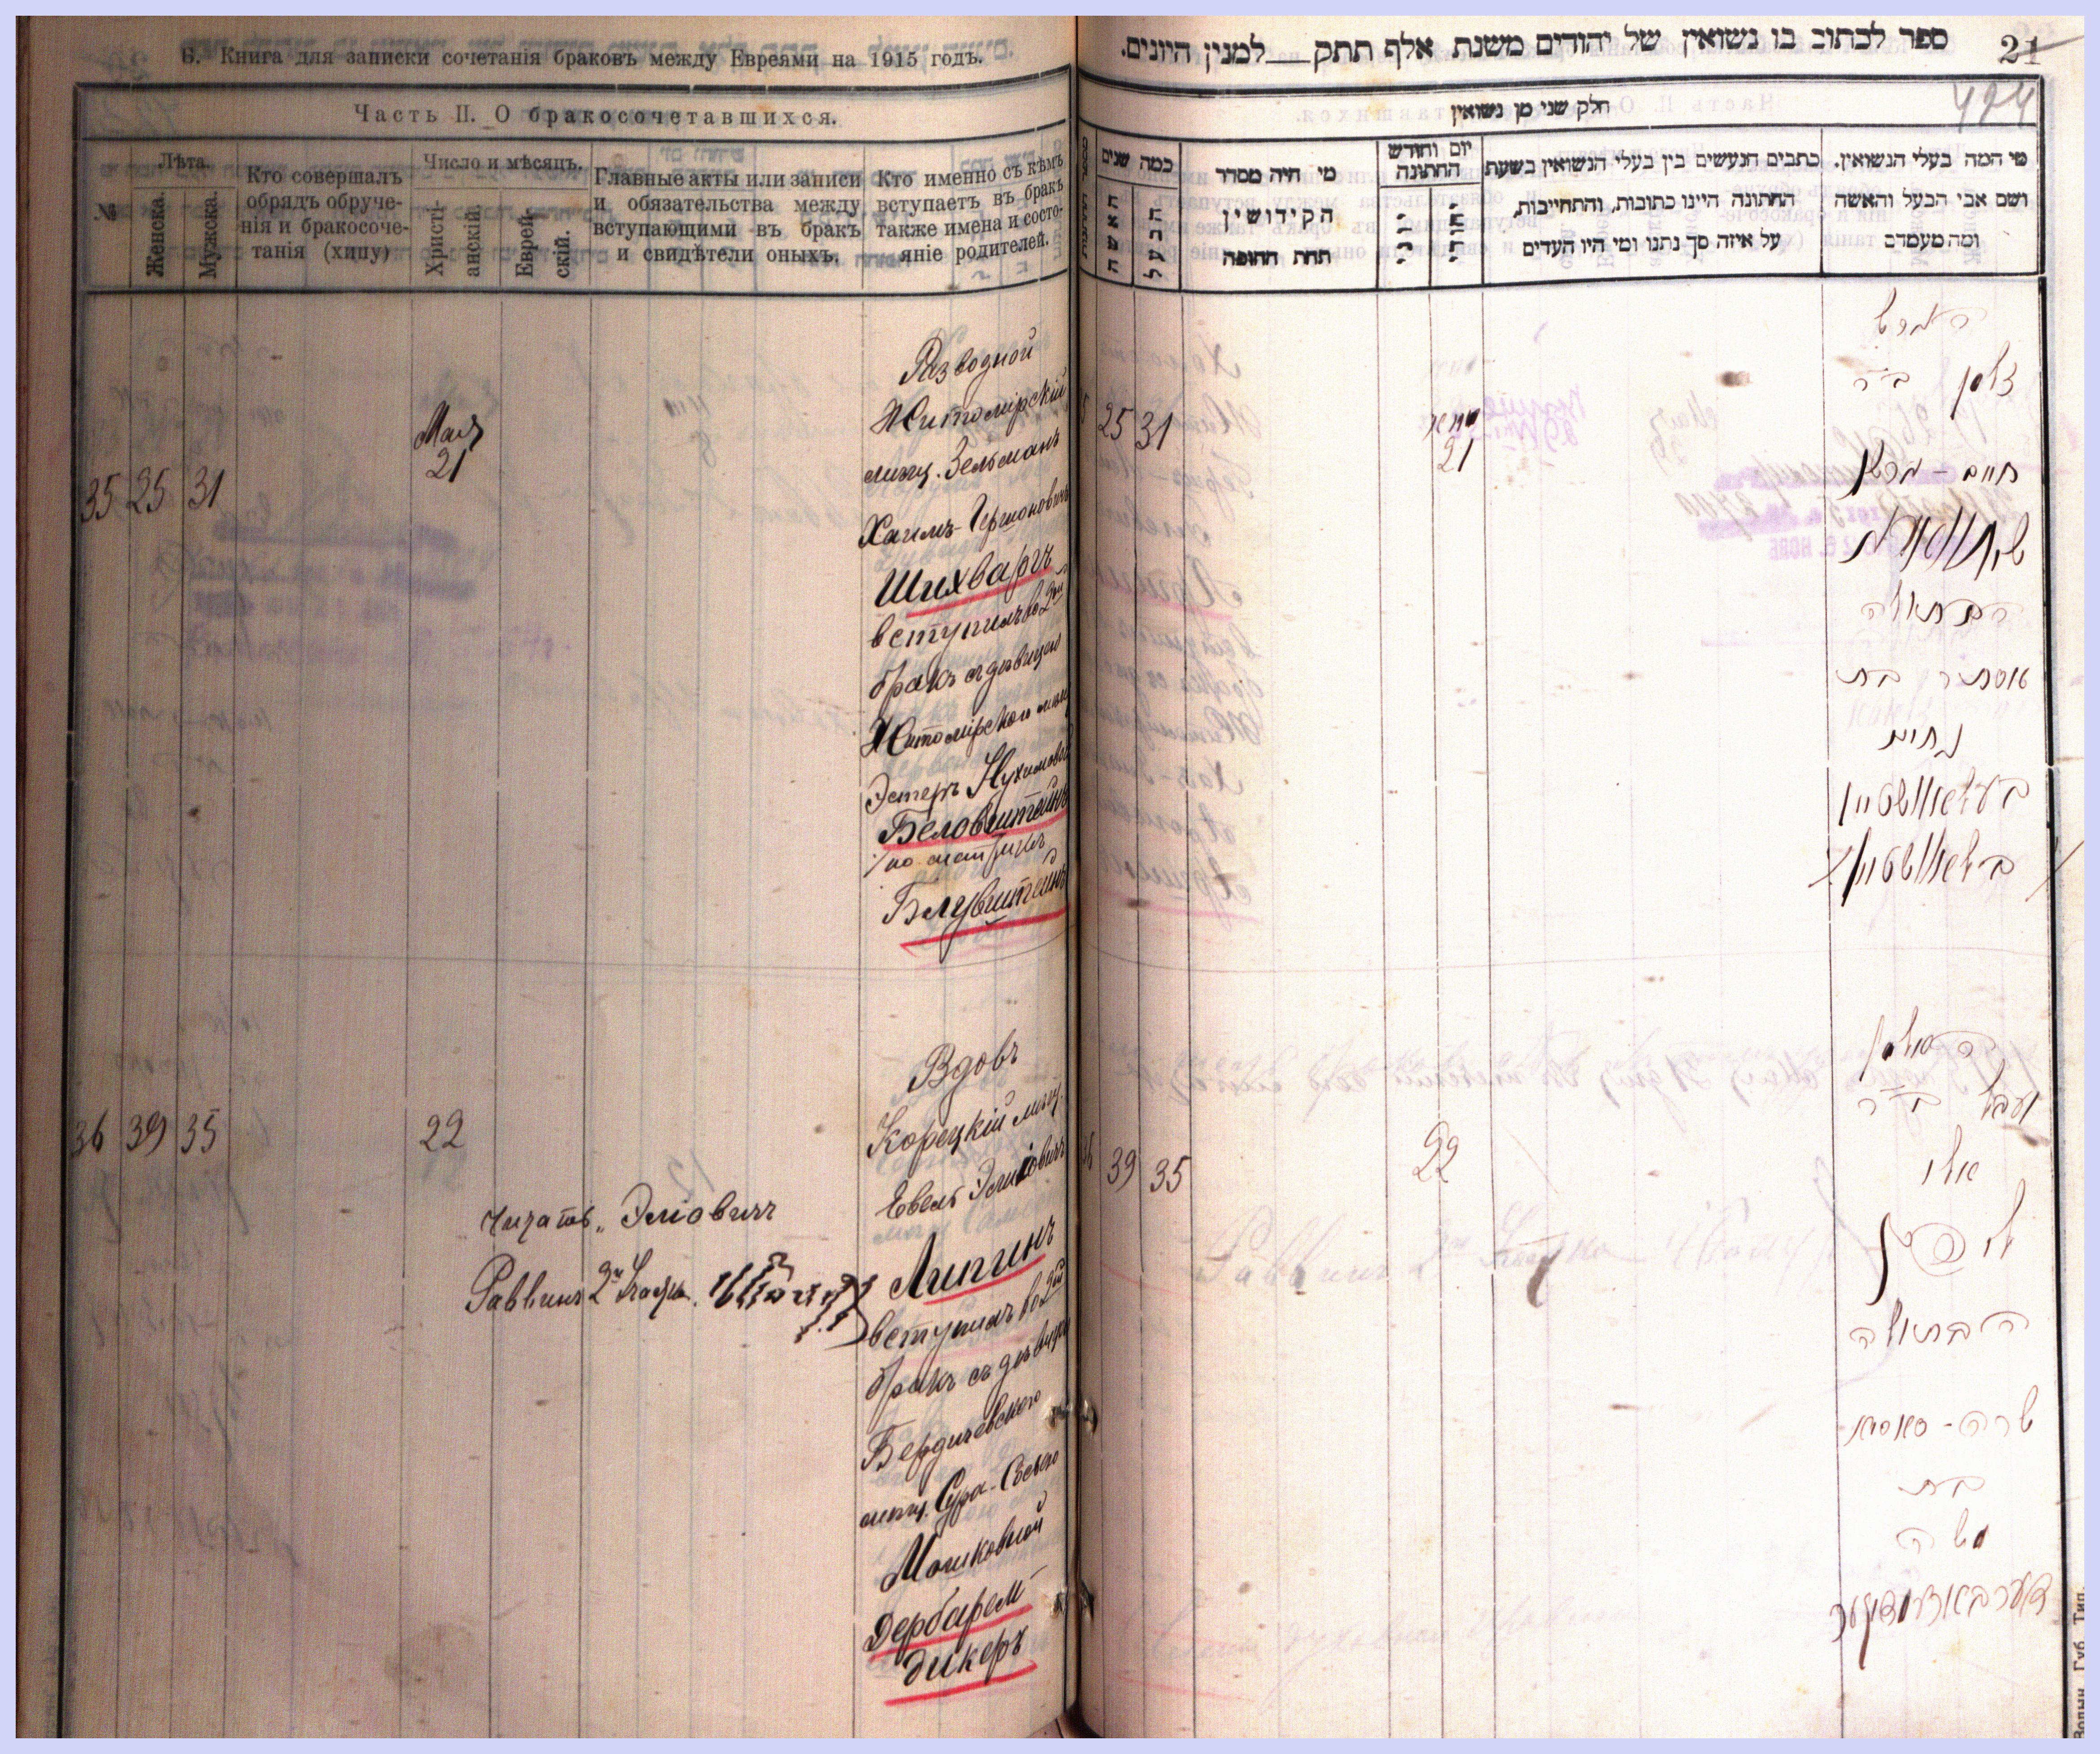 Б. Книга для записки сочетанія браковъ между Евреями на 1915 годъ.
Часть II. О бракосочетавшихся.
№
Лѣта.
Женска.
Мужска.
Кто совершалъ
обрядъ обруче-
нія и бракосоче-
танія (хипу)
Число и мѣсяцъ.
Христі-
анскій.
Еврей-
скій.
Главные акты или записи
и обязательства между
вступающими въ бракъ
и свидѣтели оныхъ.
Кто именно съ кѣмъ
вступаетъ въ бракъ
также имена и состо-
яніе родителей.
35 25 31
Мая
21
Разводной
Житомірскій
мѣщ. Зельманъ
Хаимъ-Гершоновичъ
Шихваргъ
вступилъ во 2ой
бракъ съ дѣвицею
Житомірской мѣщ
Эстеръ Нухимовой
Беловштейнъ
/по метрикѣ
Блувштейнъ
36 39 35
22
Вдовъ
Корецкій мѣщ.
Евель Эліовичъ
Липинъ
вступилъ во 2ой
бракъ съ дѣвицею
Бердичевскаго
мѣщ. Сура-Сосею
Мошковной
Дербарем-
дикеръ
Читать „Эліовичъ
Раввинъ
ספר לכתוב בו נשואין של יהודים משנת אלף תתק___למנין היונים.
21
494
חלק שני מן נשואין
כמה שנים
האשה
הבעל
מי היה מסדר
הקידושין
תחת החופה
יום וחודש
החתונה
יוני
יהודי
כתבים הנעשים בין בעלי הנשואין בשעת
החתונה היינו כתובות, והתחייבות,
על איזה סך נתנו ומי היו העדים
מי המה בעלי הנשואין.
ושם אבי הבעל והאשה
ומה מעמדם
25 31
מאי
21
הגרוש
זלמן ב״ר
חיים-גרשן
שיחווארג
הבתולה
אסתר בת
נחום
בעלאוושטיין
בלאוושטיין
39 35
22
האלמן
יועבל ב״ר
אלי
ליפין
הבתולה
שרה-סאסיא
בת
משה
דערבארימדיגער
Волын. Губ. Тип.